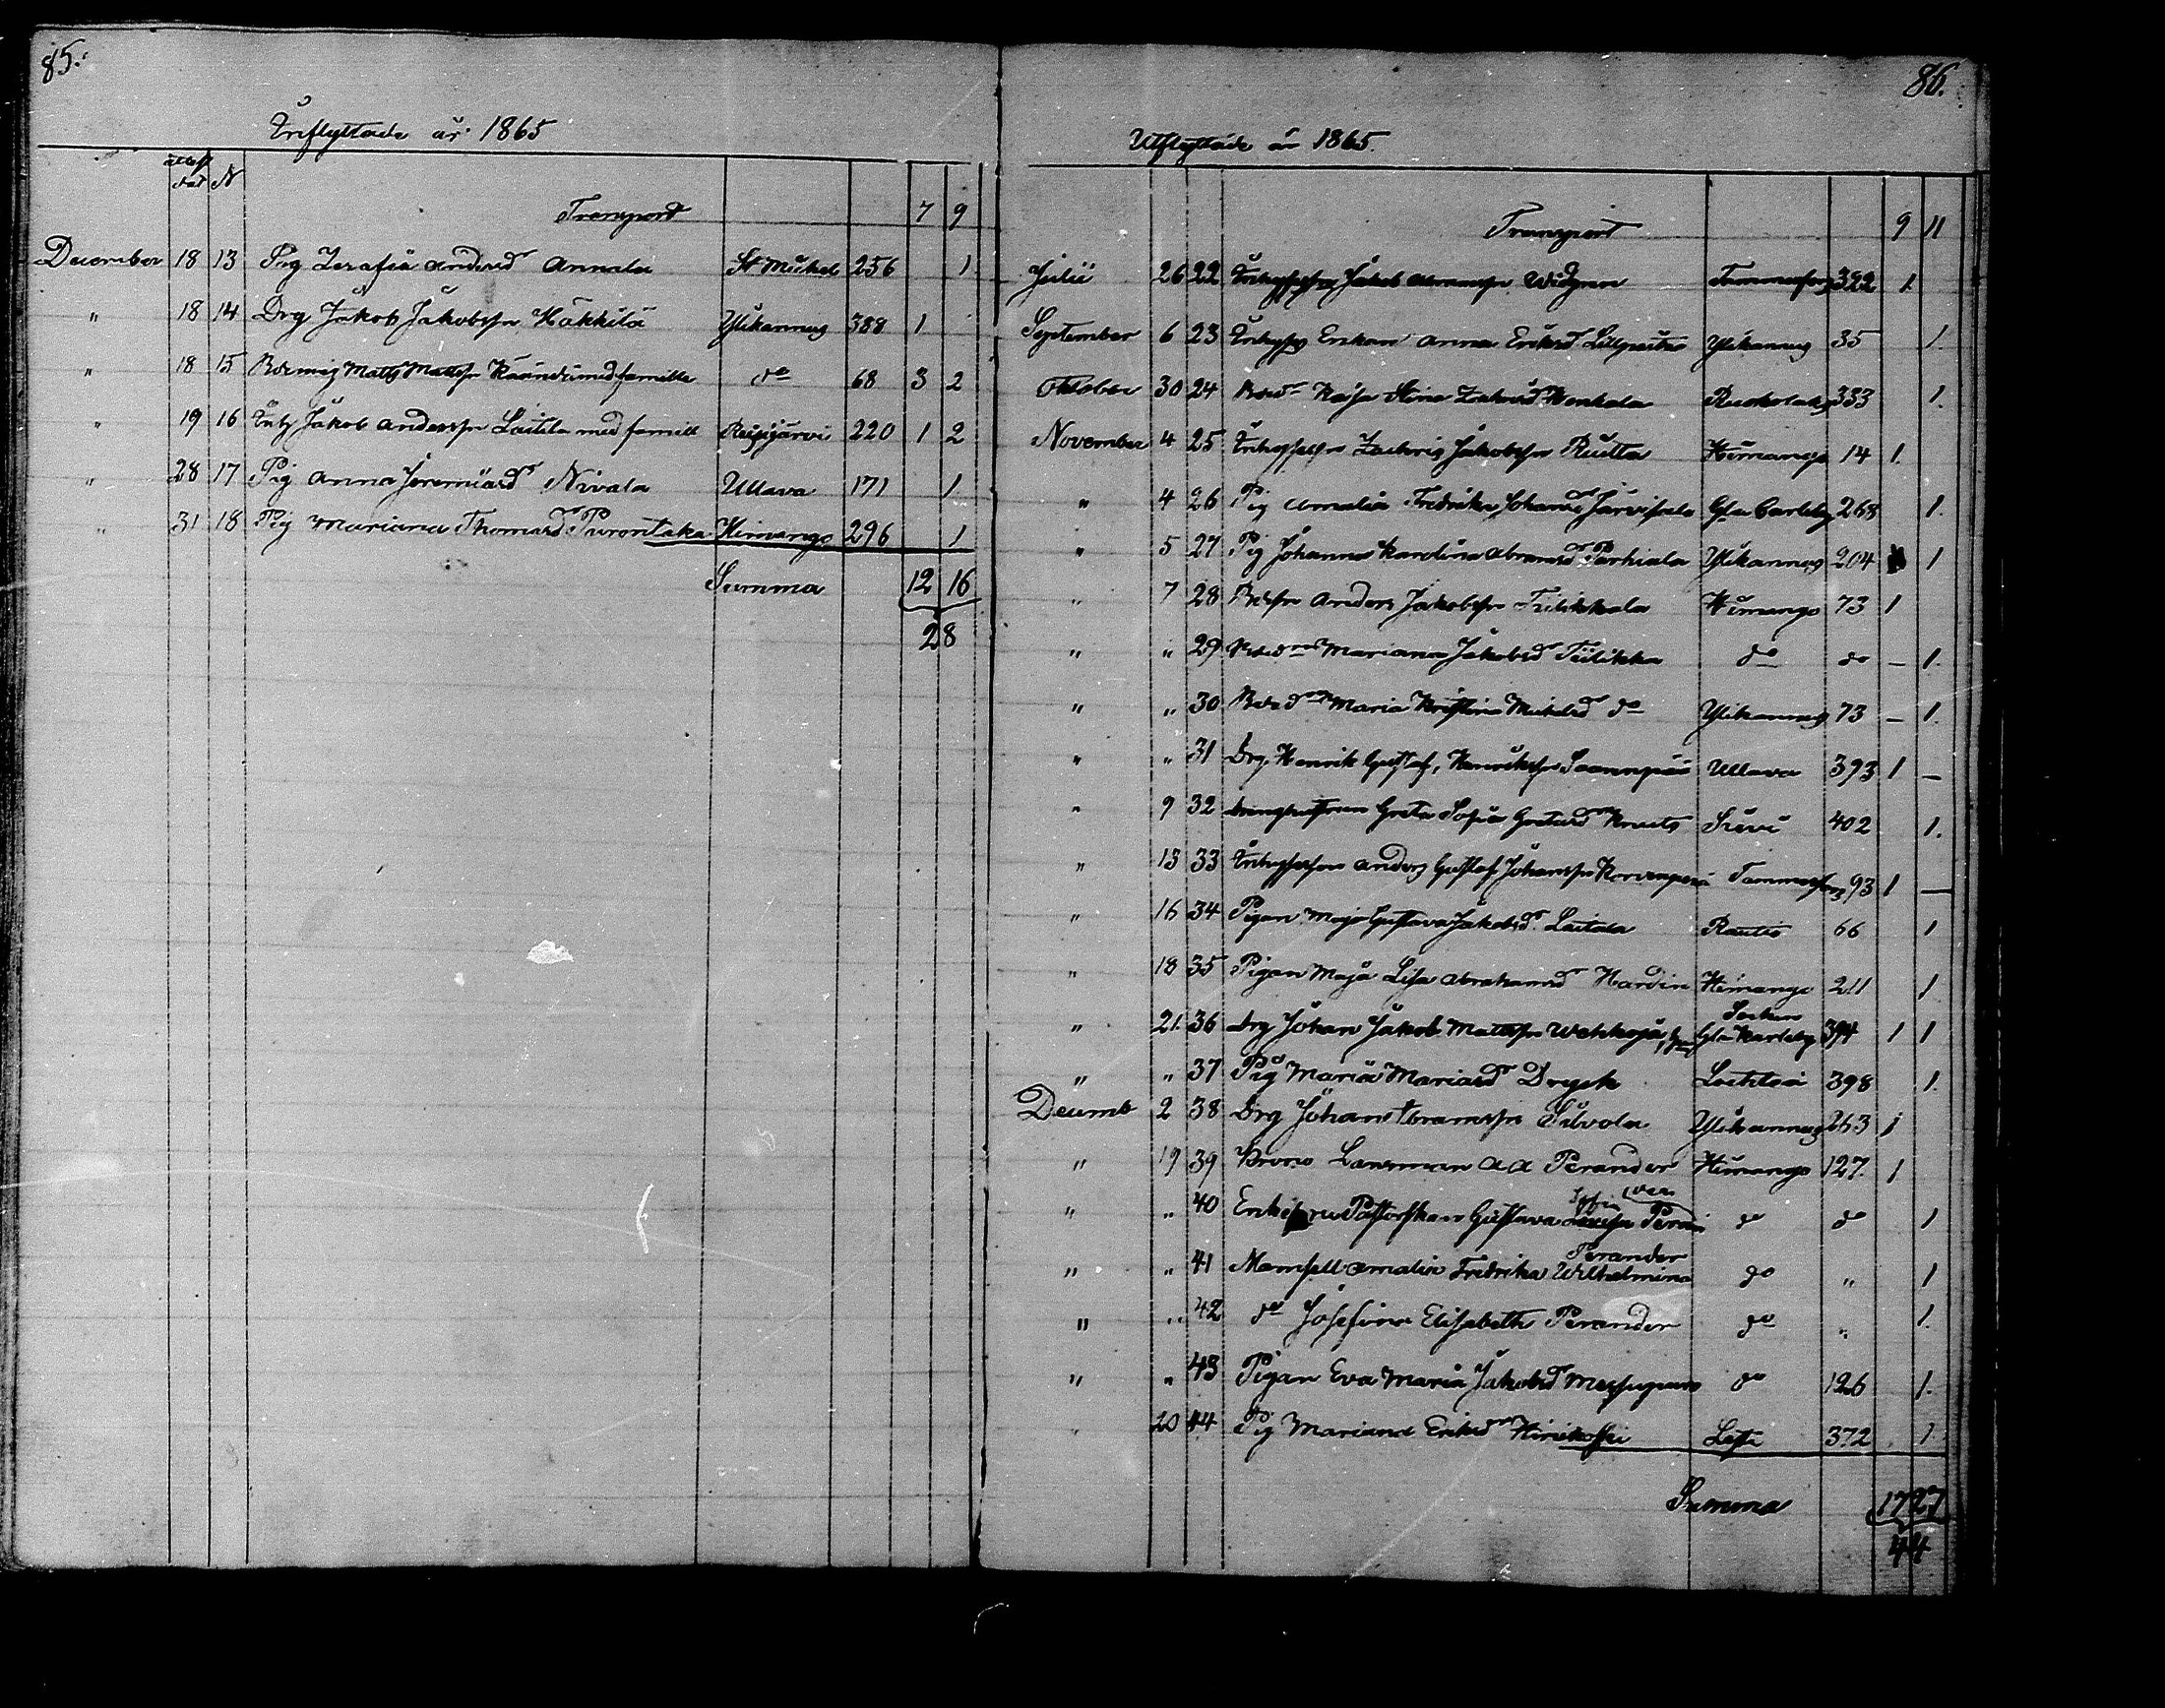 85.
Inflyttade år 1865
attest dat N
Transport 7 9
December 18 13 Pig Serafia Andersd Annala St Mickel 256 1
" 18 14 Drg Jakob Jakobsson Häkkilä Ylikannus 388 1
" 18 15 Matts Mattsson med familie do 68 3 2
" 19 16 Inh Jakob Andersson Laitila med famill Reisjärvi 220 1 2
" 28 17 Pig Anna Jeremiasd Nivala Ullava 171 1
" 31 18 Pig Mariana Thomasd Purontaka Himango 296 1
Summa 12 16
28
86.
Utflyttade år 1865.
Transport 9 11
Julii 26 22 Jakob Abramsson Widgren Tammerfors 322 1
September 6 23 Enkan Anna Eriksd Ylikannus 35 1.
Oktober 30 24 Kajsa Stina 333 1.
November 4 25 Zachris Jakobsson Ruutta Himango 14 1.
" 4 26 Pig Amalia Fredrika Johansd Gla Carleby 268 1.
" 5 27 Pig Johanna Karolina Abramsd Parhiala Ylikannus 204 1
" 7 28 Anders Jakobsson Tiilikkala Himango 73 1
" " 29 Mariana Jakobsd Tiilikka do do – 1.
" " 30 Maria Kristina Mickelsd do Ylikannus 73 – 1.
" " 31 Drg. Henrik Gustaf, Henriksson Ullava 393 1 –
" 9 32 Greta Sofia Sievi 402 1.
" 13 33 Anders Gustaf Johansson Tammerfors 93 1 –
" 16 34 Pigan Maja Gustava Jakobsd. Laitala Rautio 66 1
" 18 35 Pigan Maja Lisa Abrahamsd Hardin Himango 211 1
" 21. 36 Drg Johan Jakob Mattsson Socken Gla Karleby 394 1 1
" " 37 Pig Maria Mariasd Dryck Lochteå 398 1.
Decemb 2 38 Drg Johan Abramsson Silvola Ylikannus 263 1
" 19 39 Krono Länsman A A Perander Himango 127. 1
" " 40 Pastorskan Gustava Sofia Perander do do 1
" " 41 Mamsell Amalia Fredrika Wilhelmina Perander do " 1
" " 42 do Josefina Elisabeth Perander do " 1.
" " 43 Pigan Eva Maria Jakobsd do 126 1.
" 20 44 Pig Mariana Eriksd Hirvikoski Lesti 372 1
Summa 17 27
44